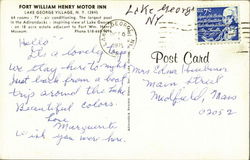 FORT WILLIAM HENRY MOTOR INN
LAKE GEORGE VILLAGE, N. Y. 12845
68 rooms - TV - air conditioning. The largest pool
in the Adirondacks - inspiring view of Lake George
- on 18 acre estate adjacent to Fort Wm. Henry
Museum Phone 518 668
Lake George
NY
LAKE GEORGE, N.Y.
1975
Hello
It is a lovely day
We stay here tonight
Just back from a boat
trip around the lake
Beautiful colors.
Love
Marguerite
Wish you were here.
Post Card
Mrs. Edna
Main Street
Medfield, Mass
02052